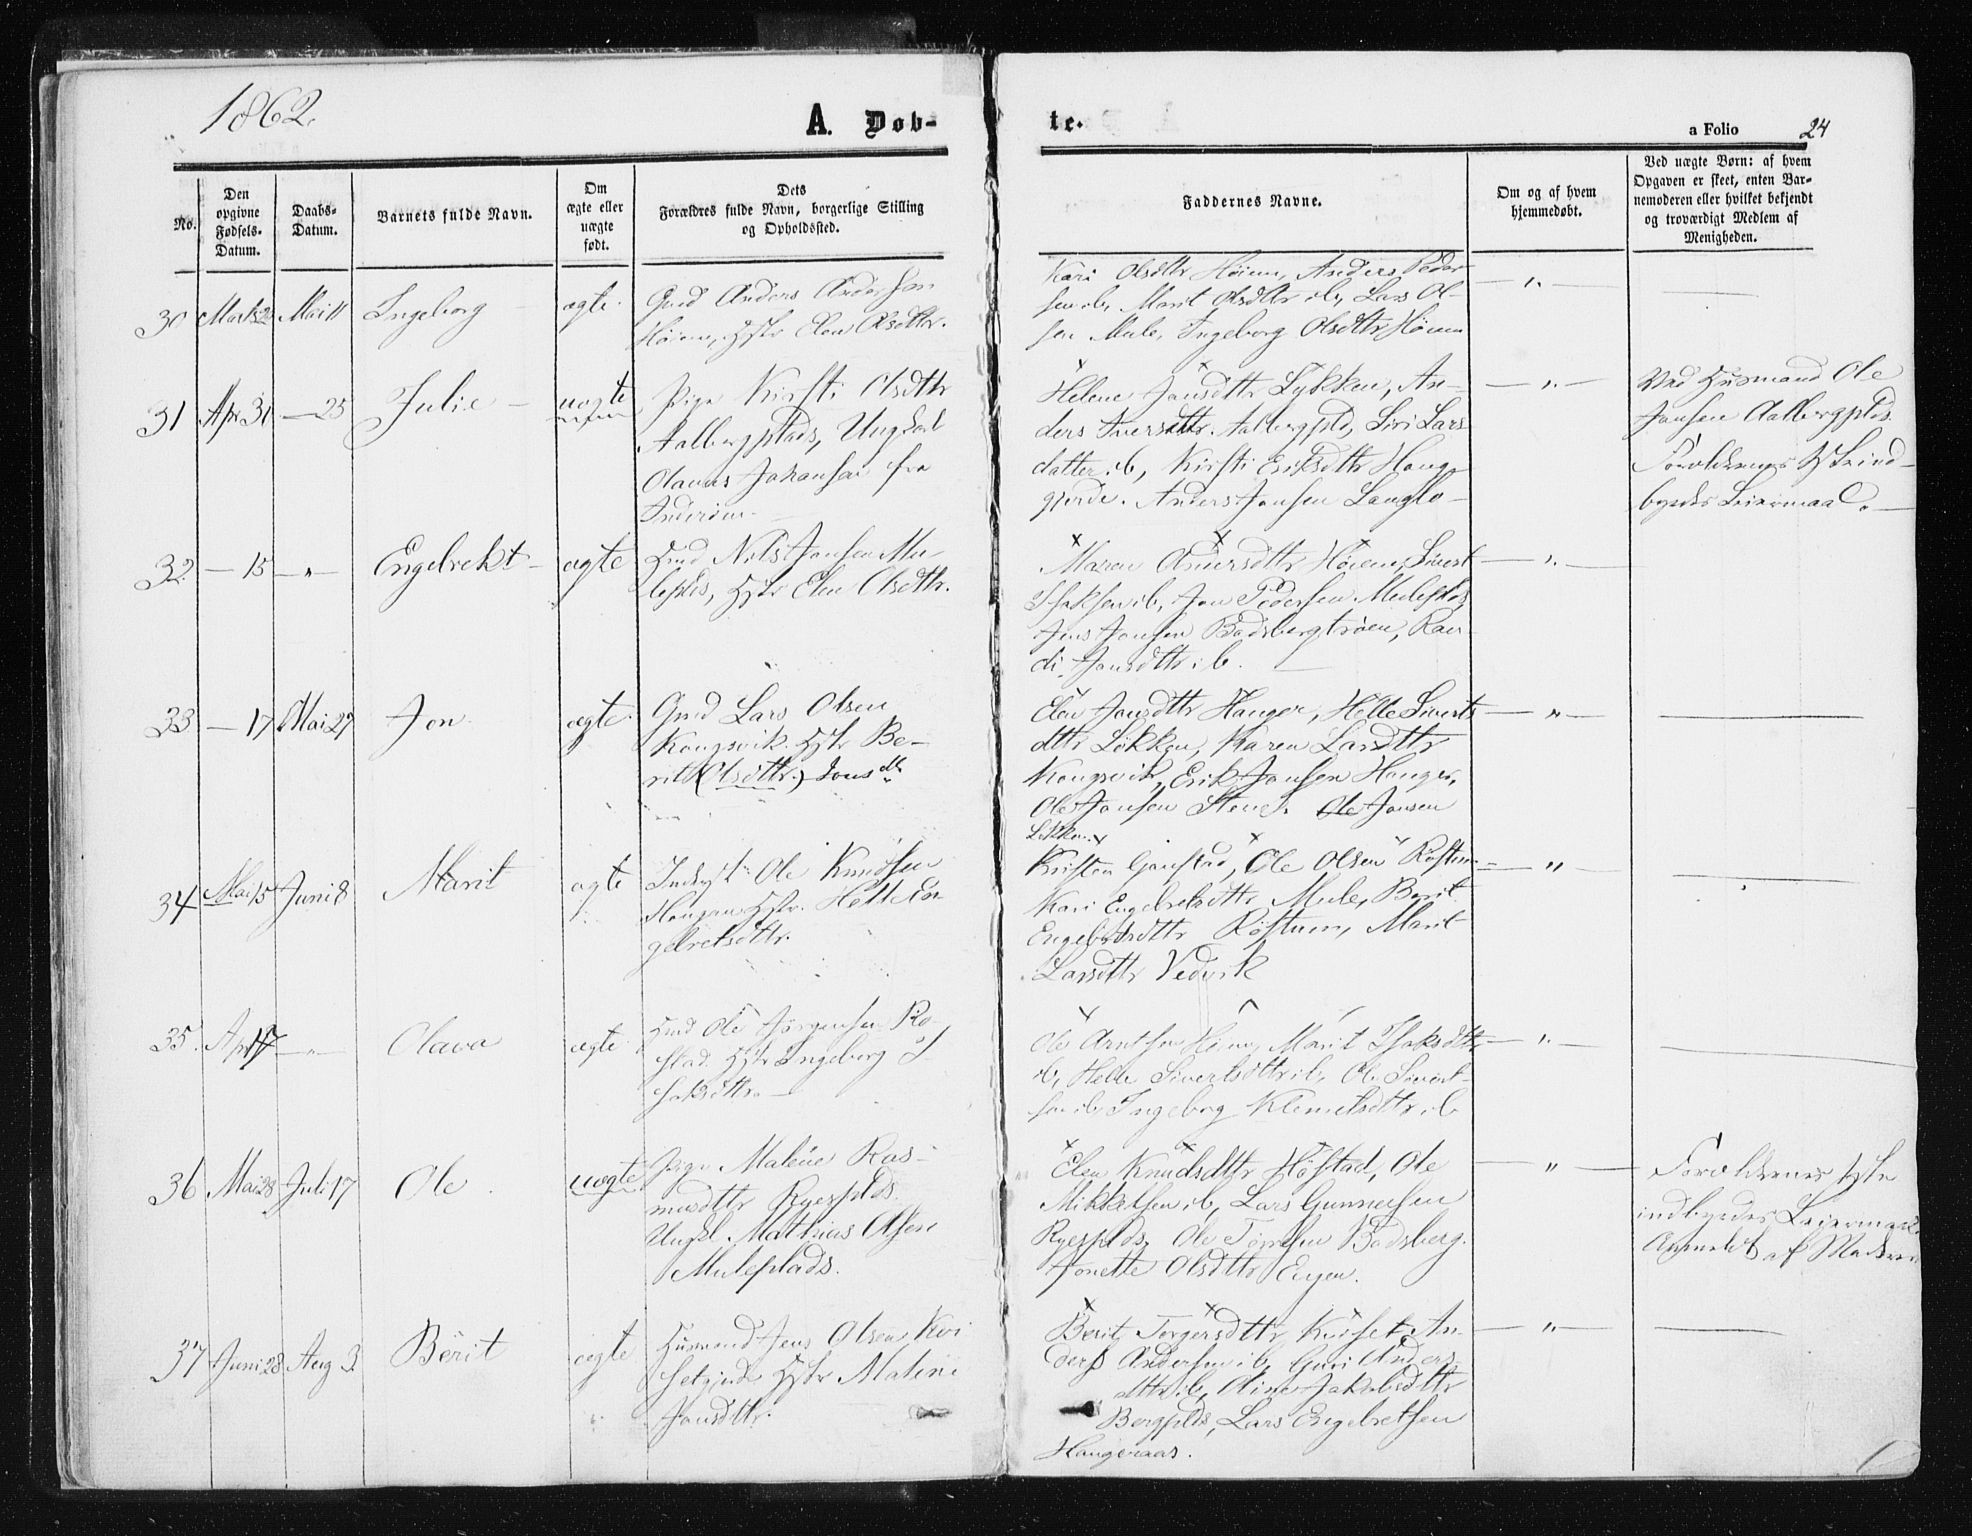 1862.
A. Døb-
te.
a Folio 24
No.
Den opgivne Fødsels-Datum.
Daabs-Datum.
Barnets fulde Navn.
Om ægte eller uægte født.
Dets Forældres fulde Navn, borgerlige Stilling og Opholdssted.
Faddernes Navne.
Om og af hvem hjemmedøbt.
Ved uægte Børn: af hvem Opgaven er skeet, enten Barnemoderen eller hvilket bekjendt og troværdigt Medlem af Menigheden.
30 Mai 11 Ingeborg ægte
Gmd Anders Andersen
Høiem, Hstr Elen Olsdttr.
Kari Olsdttr Høiem, Anders Peder-
sen ib, Marit Olsdttr ib, Lars Ol-
sen Mule, Ingeborg Olsdttr Høiem
31 Apr 31 — 25 Julie — uægte
Pige Kirsti Olsdttr
Aalbergplads, Ungkarl
Olaus Johansen fra
Inderøen
Helene Jansdttr Løkken, An-
ders Iversdttr. Aalbergpld, Siri Lars
datter ib, Kirsti Eriksdttr Hauge-
gjerde. Anders Jonsen Langlo —
Ved Husmand Ole
Jansen Aalbergplds.
Forældrenes
byrdes Leiermaal.
32 — 15 — „ — Engelrekt — ægte
Hmd Nils Jonsen Mu-
leplds, Hstr Elen Olsdttr.
Maren Andersdttr Høiem, Sivert
Isaksen ib, Jon Pedersen Muleplds,
Jens Jonsen Badsbergtrøen, Ran-
di Jonsdttr ib.
33 — 17 Mai 29 Jon ægte
Gmd Lars Olsen
Kongsvik. Hstr Be-
rit (Olsdttr.) Jonsdtr
Elen Jonsdttr Hauger, Helle Siverts
dttr Løkken, Karen Larsdttr
Kongsvik, Erik Jonsen Hauger,
Ole Jonsen Stene. Ole Jonsen
Løkken.
34 Mai 15 Juni 8 Marit ægte
Inderst Ole Knudsen
Haugan Hstr. Helle En-
gelretsdttr.
Kristen Gonstad, Ole Olsen Røstum
Kari Engelretsdttr Mule, Berit
Engebretsdttr Røstum, Marit
Larsdttr Vedvik
35. Apr 17 — „ — Olava ægte
Hmd Ole Jørgensen Ro-
stad Hstr Ingeborg I-
saksdttr. —
Ole Arntsen Marit Isaksdttr
ib, Helle Sivertsdttr ib, Ole Sivert-
sen ib, Ingeborg Klemetsdttr ib
36 Mai 28 Juli 17 Ole uægte
Pige Malene Ras-
musdttr Ryesplds.
Ungkl Mathias Olsen
Muleplads.
Elen Knudsdttr Høstad, Ole
Mikkelsen ib, Lars Gunnersen
Ryesplds, Ole Badsberg.
Jonette Olsdttr Engen.
Forældrenes
indbyrdes Leiermaal
Anmeldt af Moderen
37 Juni 28 Aug 3 Berit ægte
Husmand Jens Olsen Kvi-
Hstr Malene
Jonsdttr.
Berit Torgersdttr An-
ders Andersen ib, Guri Anders
dttr ib, Oline Jakobsdttr
Bergplds, Lars Engelretsen
Haugeraas.